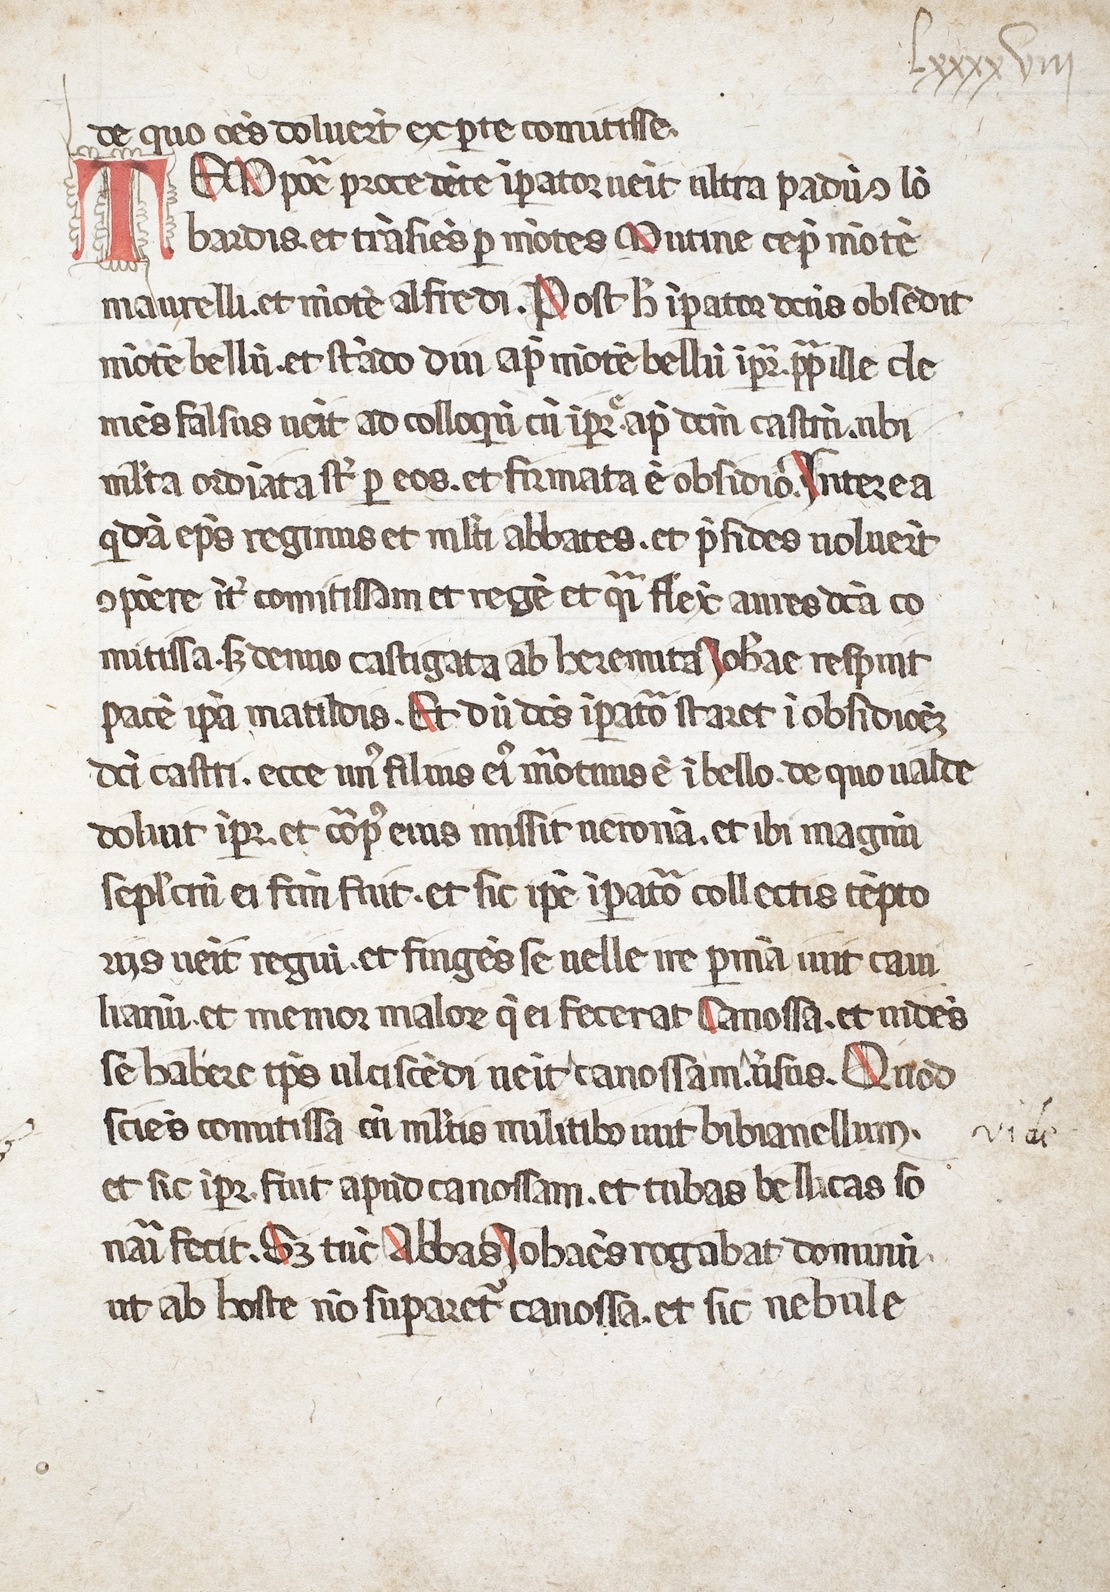 Lxxxxviii
de quo oẽs doluert̃ ex ꝑte comitisse.
TEMpoẽ procedẽte ip̃ator ueĩt ultra padũ ↄ lõ
bardis. et trãsiẽs ꝑ mõtes Mutine cep̃ mõtẽ
maurelli. et mõtẽ alfredi. Post h̃ ip̃ator dc̃us obsedit
mõtẽ bellũ. et stãdo diu ap̃ mõtẽ bellũ ip̃r. pp̃ ille cle
mẽs falsus ueĩt ad colloqũ cũ ip̃r̃e. ap̃ dc̃m castrũ. ubi
ml̃ta ordĩata st̃ ꝑ eos. et firmata ẽ obsidio. Interea
qdã ep̃s reginus et ml̃ti abbates. et p̃sides uoluert̃
ↄpõere ĩt̃ comitissam et regẽ et qũ flex̃ aures dc̃a co
mitissa. sꝫ denuo castigata ab heremita Joh̃ae respuit
pacẽ ip̃a matildis. Et dũ dc̃s ip̃ator̃ staret ĩ obsidiõeꝫ
dc̃i castri. ecce un᷒ filius ei᷒ mõtuus ẽ ĩ bello. de quo ualde
doluit ip̃r. et cõp᷒ eius missit ueronã. et ibi magnũ
sepl̃crũ ei fc̃m fuit. et sic ip̃e ip̃ator̃ collectis tẽpto
riis ueĩt regiũ. et fingẽs se uelle ire ꝑmã iuit caui
lianũ. et memor malorꝝ q̃ ei fecerat Canossa. et uidẽs
se habere tp̃s ulciscẽdi ueĩt canossam ũsus. Quod
sciẽs comitissa cũ ml̃tis militibꝰ iuit bibianellum.
et sic ip̃r. fuit apud canossam. et tubas bellicas so
nar̃i fecit. Sꝫ tũc Abbas Johães rogabat dominũ
ut ab hoste nõ suparet᷒ canossa. et sic nebule
vide